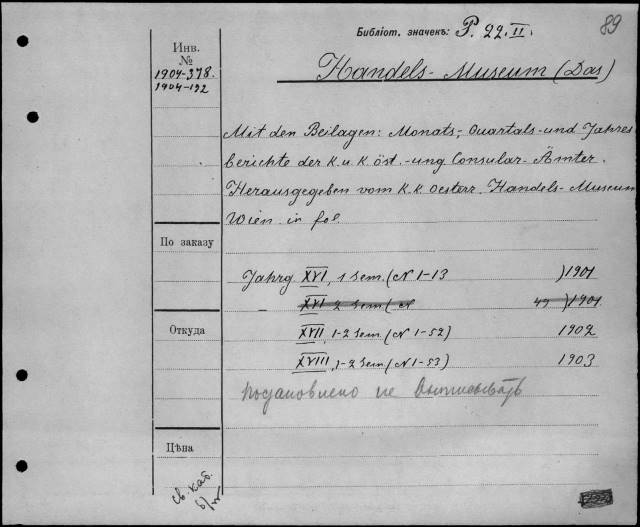 Библіот. значекъ: P. 22.II.
89
Инв.
№
1904-378.
1904-192
Handels-Museum (Das)
Mit den Beilagen: Monats-, Quartals- und Jahres
berichte der k. u. k. öst.-ung Consular-Ämter.
Herausgegeben vom k. k. oesterr. Handels-Museum
Wien. in fol.
По заказу
Jahrg. XVI, 1 Sem. (N 1-13 ) 1901
XVI 2 Sem (N 49 ) 1901
Откуда
XVII, 1-2 Sem. (N 1-52) 1902
XVIII, 1-2 Sem (N 1-53) 1903
постановлено не выписывать
Цѣна
св. каб.